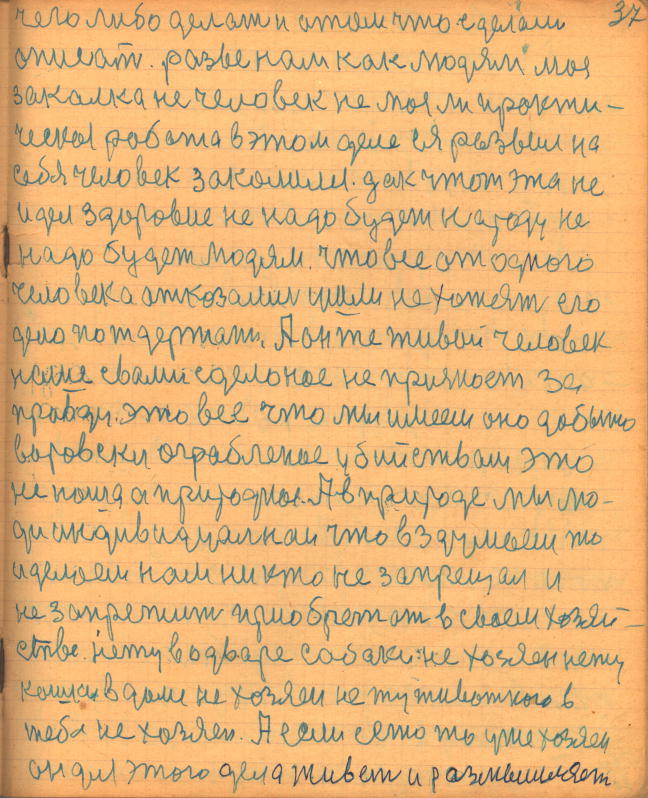 37
чего либо делат и о том что сделали
описат. разве нам как людям моя
закалка не человек не моя ли практи-
ческая работа в этом деле я развил на
себя человек закалили. дак что эта не
идея здоровие не надо будет н а году не
надо будет людям. что все от одного
человека отказалис не хотят его
дело потдержат. А он те живой человек
наше с вами сделоное не прияност за
правду. это все что мы имеем оно добыто
воровски ограбленое убийствам это
не наша а природная. А в природе мы лю-
ди индивидуалнаи что вздумаем то
и делаем нам никто не запрещал и
не запретит приобретат в своем хозяй-
стве. нету в одваре собаки не хозяен нету
кошки в доме не хозяен нету животного в
тебя не хозяен. А если ето то уже хозяен
он для этого дела живет и размышляет